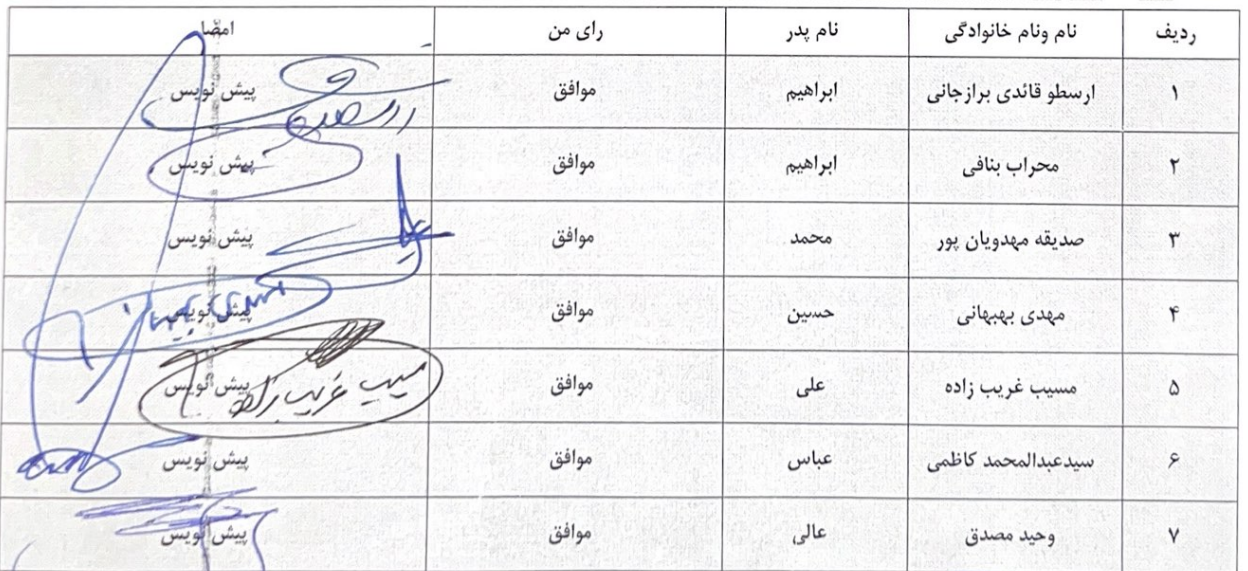 ردیف نام ونام خانوادگی نام پدر رای من امضا
۱ ارسطو قائدی برازجانی ابراهیم موافق پیش نویس
۲ محراب بنافی ابراهیم موافق پیش نویس
۳ صدیقه مهدویان پور محمد موافق پیش نویس
۴ مهدی بهبهانی حسین موافق پیش نویس
۵ مسیب غریب زاده علی موافق پیش نویس
مسیب غریب زاده
۶ سیدعبدالمحمد کاظمی عباس موافق پیش نویس
۷ وحید مصدق عالی موافق پیش نویس